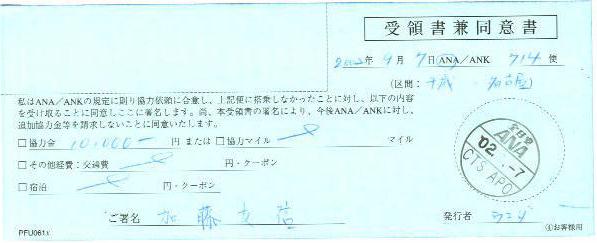 受領書兼同意書
2002年9月7日 ANA/ANK 714便
(区間: 千歳 - 名古屋)
私はANA/ANKの規定に則り協力依頼に合意し、上記便に搭乗しなかったことに対し、以下の内容
を受け取ることに同意しここに署名します。尚、本受領書の署名により、今後ANA/ANKに対し、
追加協力金等を請求しないことに同意します。
□協力金 10,000- 円 または □協力マイル マイル
□その他経費:交通費 円・クーポン
□宿泊 円・クーポン
全日空
ANA
'02.-7
CTS APO
ご署名 加藤
発行者
PFU061
④お客様用